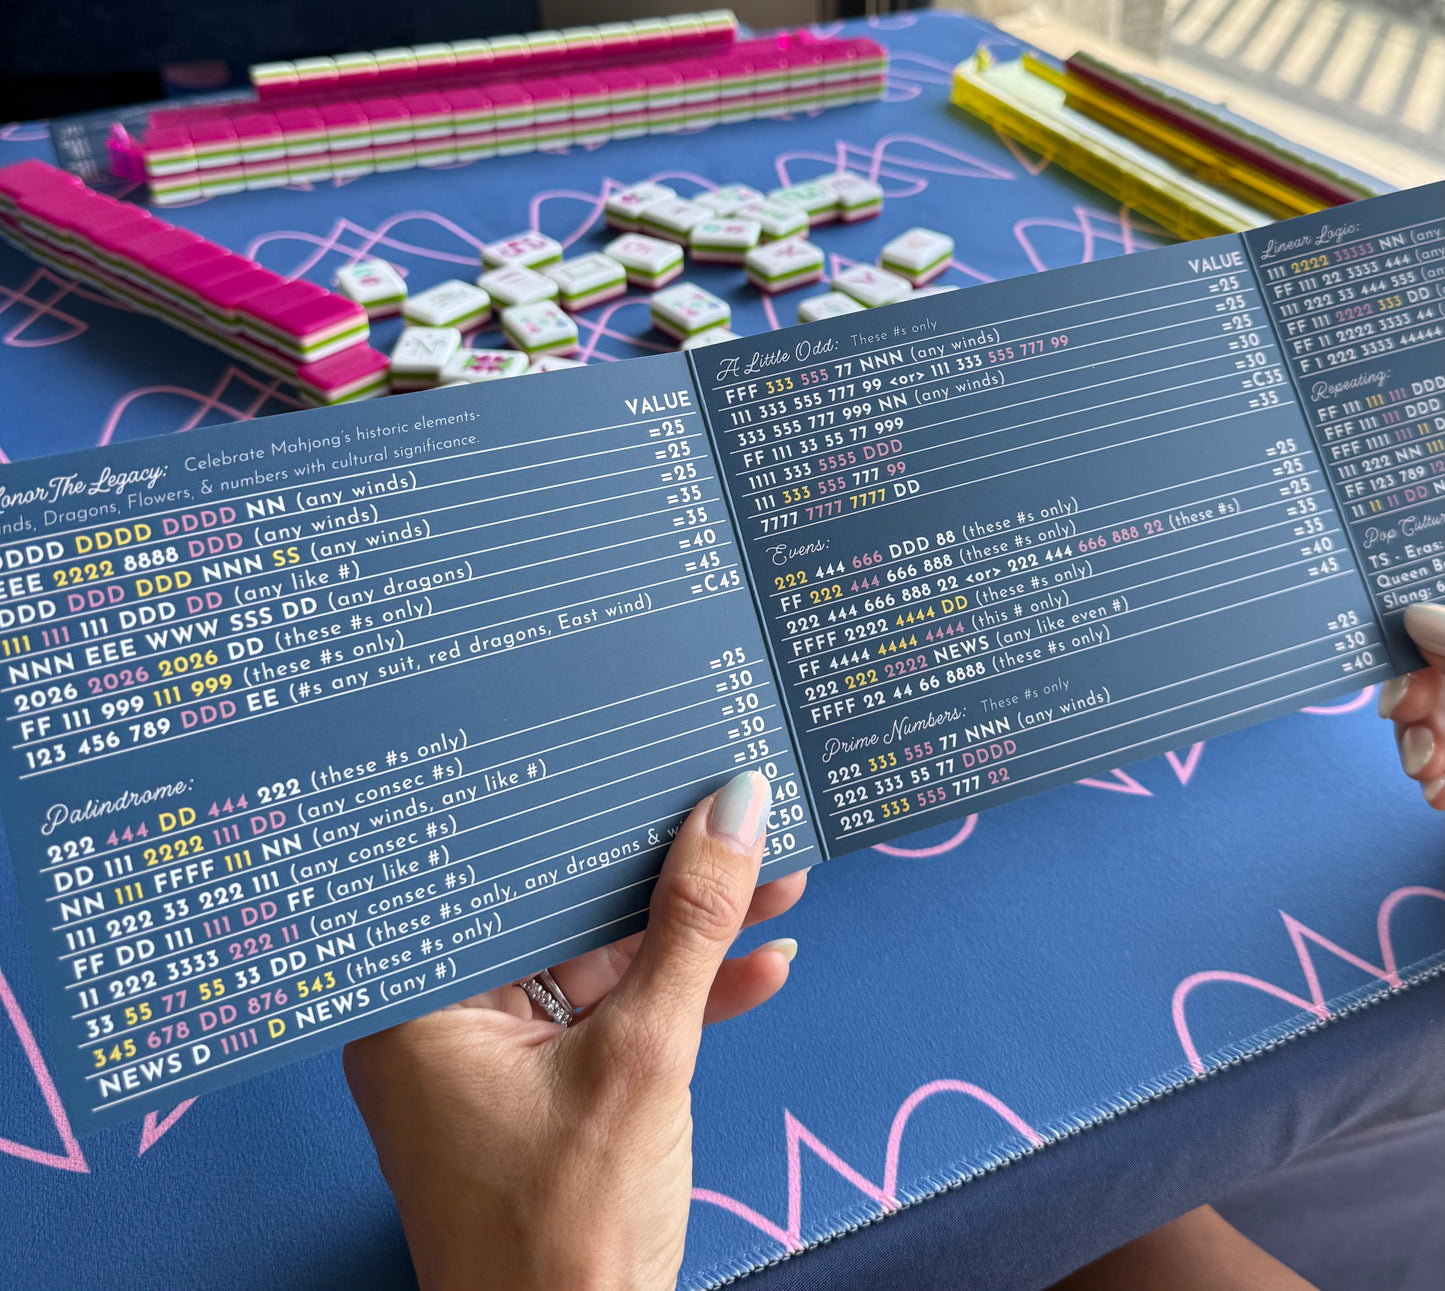 onor The Legacy: Celebrate Mahjong's historic elements-
nds, Dragons, Flowers, & numbers with cultural significance.
VALUE
DDDD DDDD DDDD NN (any winds) =25
EEE 2222 8888 DDD (any winds) =25
DDD DDD DDD NNN SS (any winds) =25
111 111 111 DDD DD (any like #) =35
NNN EEE WWW SSS DD (any dragons) =35
2026 2026 2026 DD (these #s only) =40
FF 111 999 111 999 (these #s only) =45
123 456 789 DDD EE (#s any suit, red dragons, East wind) =C45
Palindrome:
222 444 DD 444 222 (these #s only) =25
DD 111 2222 111 DD (any consec #s) =30
NN 111 FFFF 111 NN (any winds, any like #) =30
111 222 33 222 111 (any consec #s) =30
FF DD 111 111 DD FF (any like #) =35
11 222 3333 222 11 (any consec #s) 0
33 55 77 55 33 DD NN (these #s only, any dragons & w 40
345 678 DD 876 543 (these #s only) C50
NEWS D 1111 D NEWS (any #) =50
A Little Odd: These #s only VALUE
FFF 333 555 77 NNN (any winds) =25
111 333 555 777 99 <or> 111 333 555 777 99 =25
333 555 777 999 NN (any winds) =25
FF 111 33 55 77 999 =30
1111 333 5555 DDD =30
111 333 555 777 99 =C35
7777 7777 7777 DD =35
Evens:
222 444 666 DDD 88 (these #s only) =25
FF 222 444 666 888 (these #s only) =25
222 444 666 888 22 <or> 222 444 666 888 22 (these #s) =25
FFFF 2222 4444 DD (these #s only) =35
FF 4444 4444 4444 (this # only) =35
222 222 2222 NEWS (any like even #) =40
FFFF 22 44 66 8888 (these #s only) =45
Prime Numbers: These #s only
222 333 555 77 NNN (any winds) =25
222 333 55 77 DDDD =30
222 333 555 777 22 =40
Linear Logic:
111 2222 33333 NN (any
FF 111 22 3333 444 (any
111 222 33 444 555 (any
FF 111 2222 333 DD (
FF 11 2222 3333 44 (
F 1 222 3333 44444
Repeating:
FF 111 111 111 DDD
FFF 111 111 DDD
FFF 1111 111 11 D
111 222 NN 111
FF 123 789 12
11 11 11 DD N
Pop Cultur
TS - Eras:
Queen Be
Slang: 6